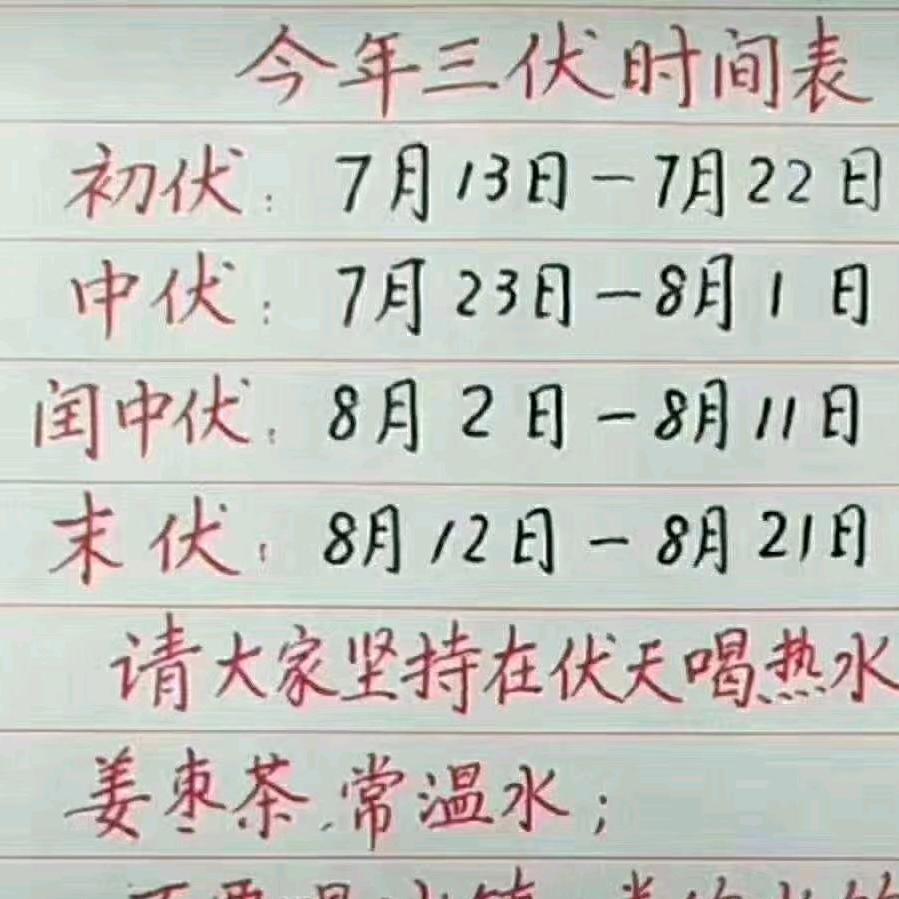 今年三伏时间表
初伏：7月13日－7月22日
中伏：7月23日－8月1日
闰中伏：8月2日－8月11日
末伏：8月12日－8月21日
请大家坚持在伏天喝热水
姜枣茶.常温水；